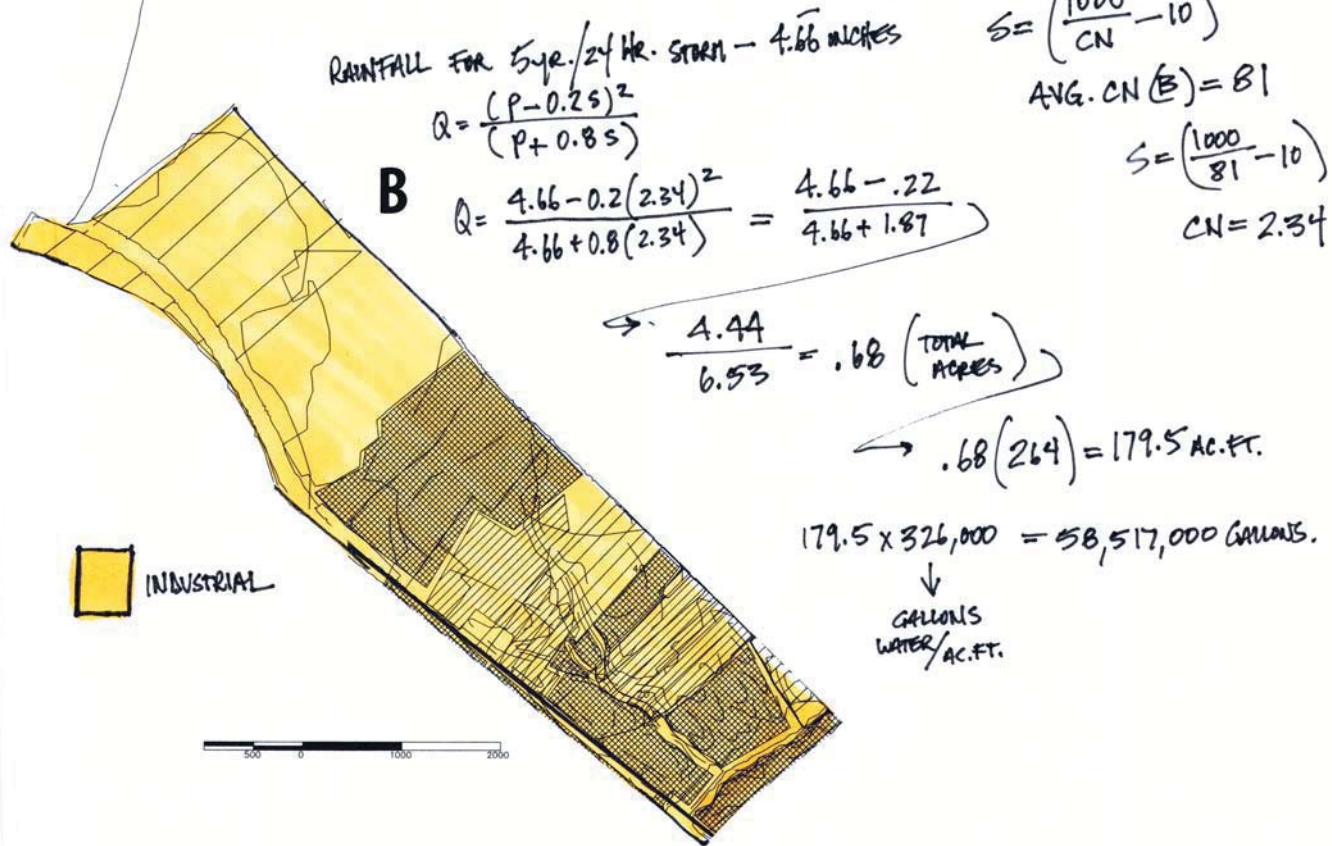 RAINFALL FOR 5yr./24 HR. STORM – 4.66 INCHES
Q = (P – 0.2 S)² / (P + 0.8 S)
B
Q = 4.66 – 0.2(2.34)² / 4.66 + 0.8(2.34) = 4.66 – .22 / 4.66 + 1.87
4.44 / 6.53 = .68 (TOTAL ACRES)
.68(264) = 179.5 AC.FT.
179.5 x 326,000 = 58,517,000 GALLONS.
GALLONS
WATER/AC.FT.
S = (1000 / CN – 10)
AVG. CN (B) = 81
S = (1000 / 81 – 10)
CN = 2.34
INDUSTRIAL
500 0 1000 2000